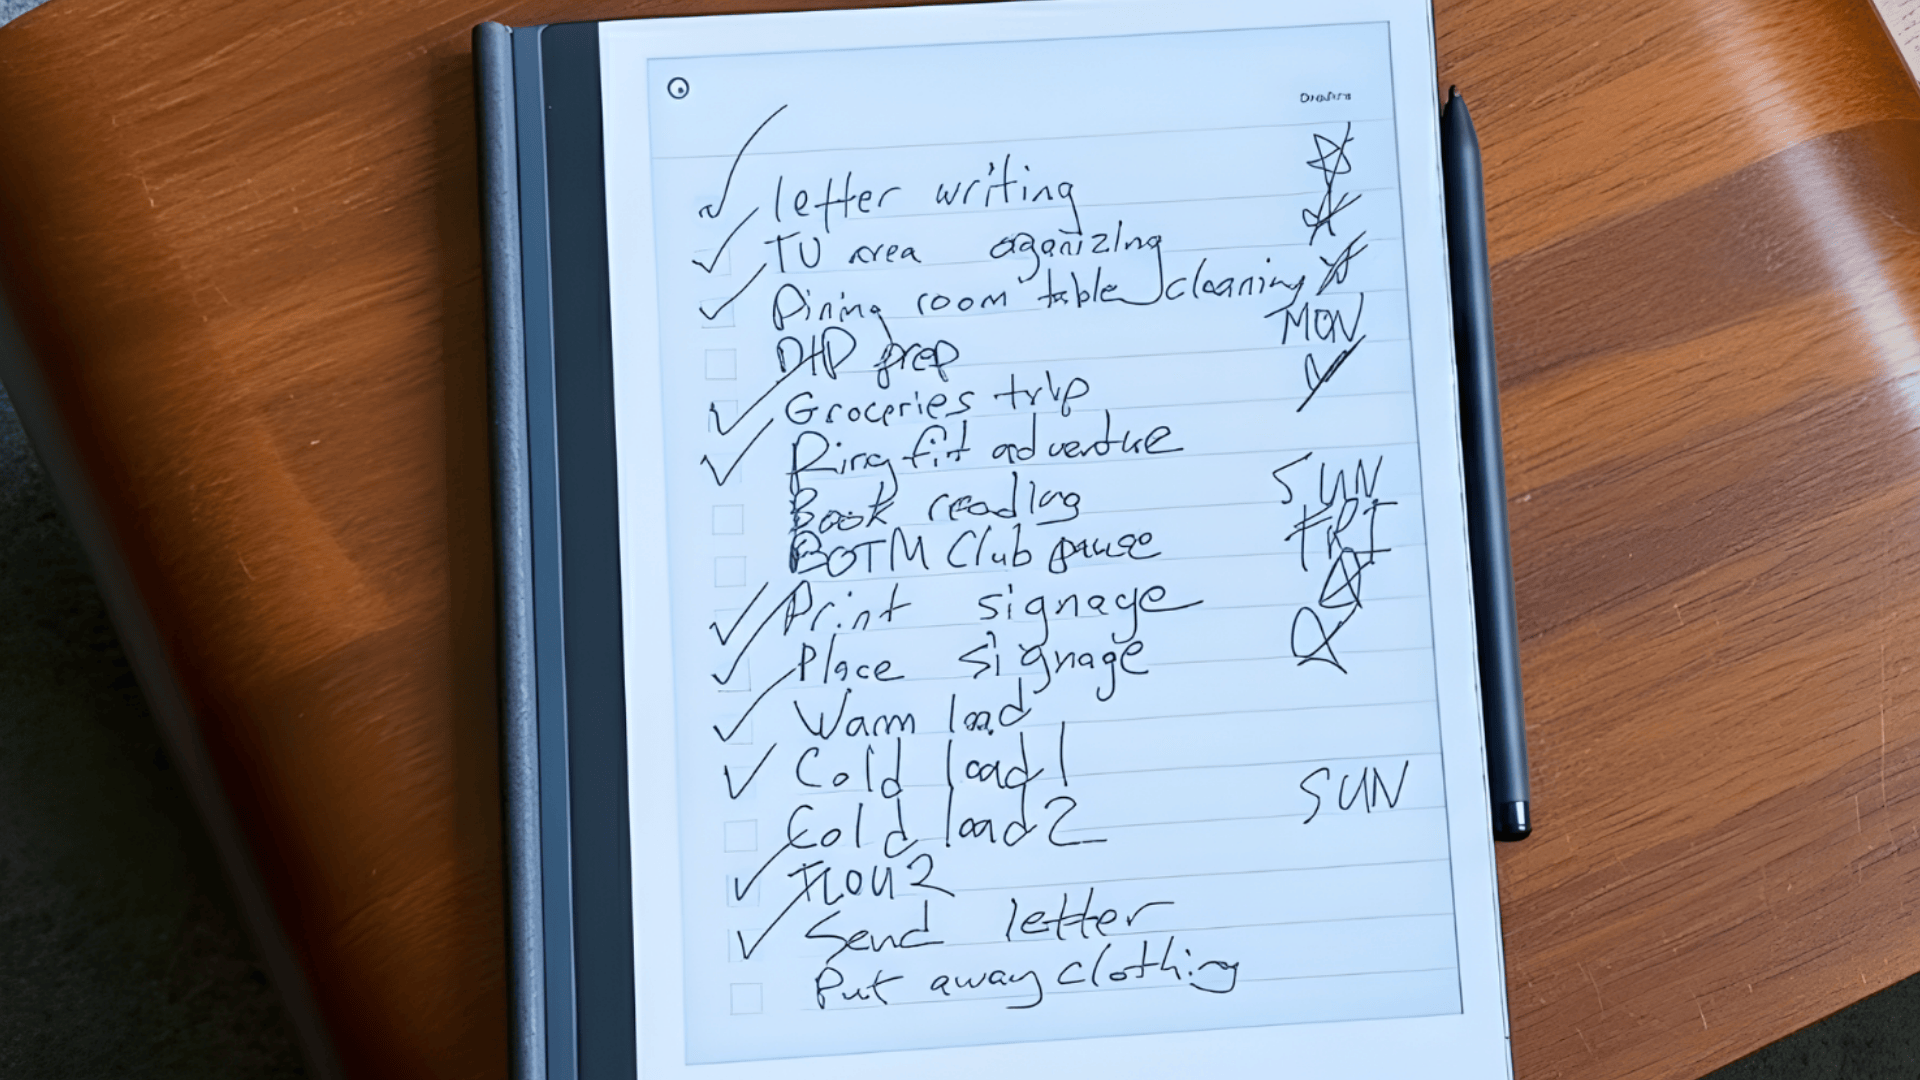 letter writing
TV area oganizing
Dining room table cleaning
DtD prep MON
Groceries trip
Ring fit adventure
Book reading SUN
BOTM Club pause FRI
Print signage
Place signage
Warm load
Cold load 1
Cold load 2 SUN
Send letter
Put away clothing